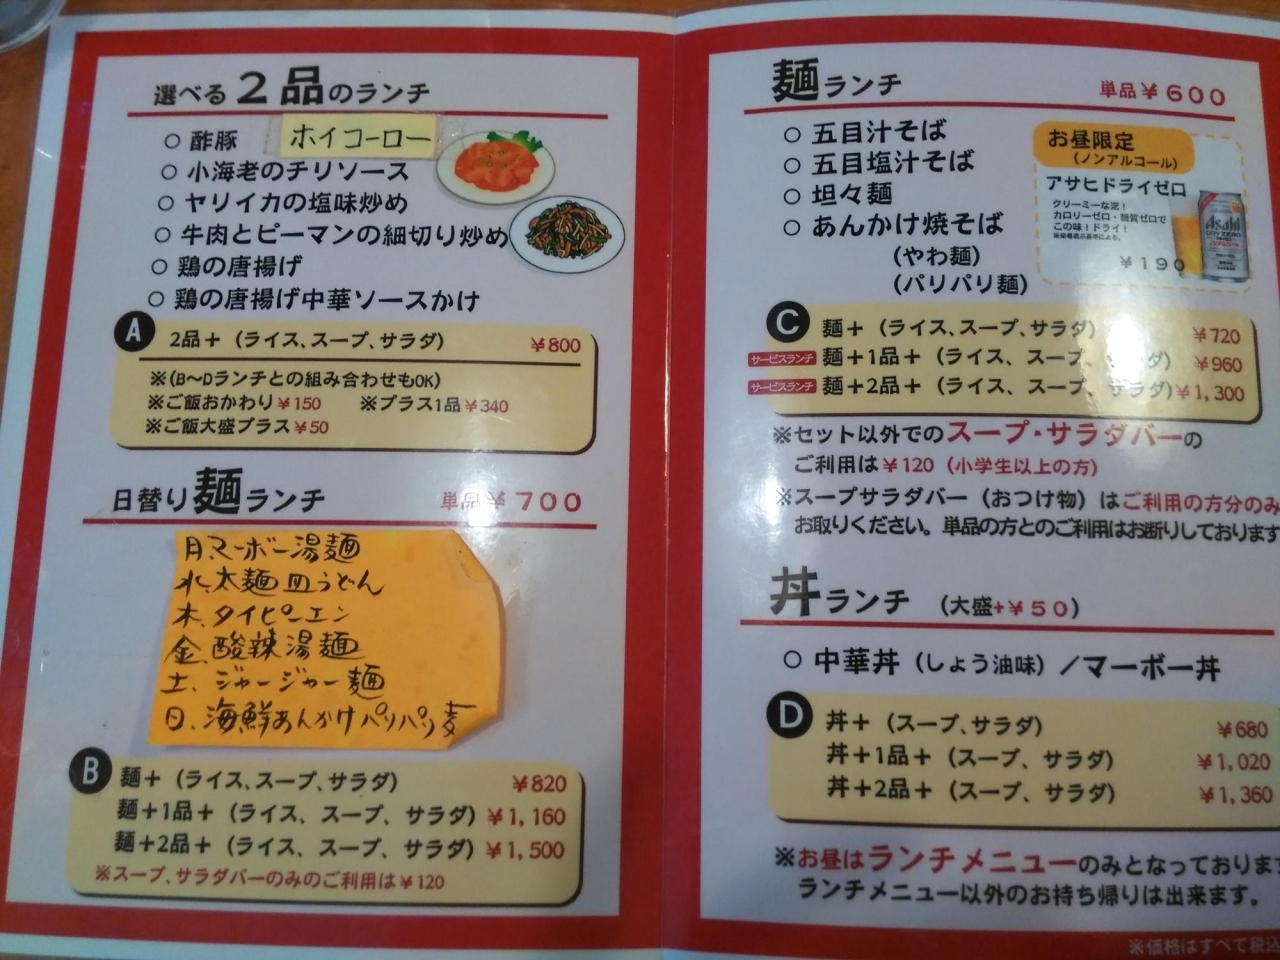 選べる2品のランチ
○ 酢豚 ホイコーロー
○ 小海老のチリソース
○ ヤリイカの塩味炒め
○ 牛肉とピーマンの細切り炒め
○ 鶏の唐揚げ
○ 鶏の唐揚げ中華ソースかけ
A 2品+（ライス、スープ、サラダ） ¥800
※(B～Dランチとの組み合わせもOK)
※ご飯おかわり¥150 ※プラス1品¥340
※ご飯大盛プラス¥50
日替り麺ランチ 単品¥700
月.マーボー湯麺
水.太麺皿うどん
木.タイピーエン
金.酸辣湯麺
土.ジャージャー麺
日.海鮮あんかけパリパリ麦
B 麺+（ライス、スープ、サラダ） ¥820
麺+1品+（ライス、スープ、サラダ）¥1,160
麺+2品+（ライス、スープ、サラダ）¥1,500
※スープ、サラダバーのみのご利用は¥120
麺ランチ 単品¥600
○ 五目汁そば
○ 五目塩汁そば
○ 坦々麺
○ あんかけ焼そば
（やわ麺）
（パリパリ麺）
お昼限定
（ノンアルコール）
アサヒドライゼロ
クリーミーな泡！
カロリーゼロ・糖質ゼロで
この味！ドライ！
¥190
Asahi
DRY ZERO
C 麺+（ライス、スープ、サラダ） ¥720
サービスランチ 麺+1品+（ライス、スープ、サラダ） ¥960
サービスランチ 麺+2品+（ライス、スープ、サラダ）¥1,300
※セット以外でのスープ・サラダバーの
ご利用は¥120（小学生以上の方）
※スープサラダバー（おつけ物）はご利用の方分のみ
お取りください。単品の方とのご利用はお断りしております
丼ランチ （大盛+¥50）
○ 中華丼（しょう油味）／マーボー丼
D 丼+（スープ、サラダ） ¥680
丼+1品+（スープ、サラダ） ¥1,020
丼+2品+（スープ、サラダ） ¥1,360
※お昼はランチメニューのみとなっております
ランチメニュー以外のお持ち帰りは出来ます。
※価格はすべて税込